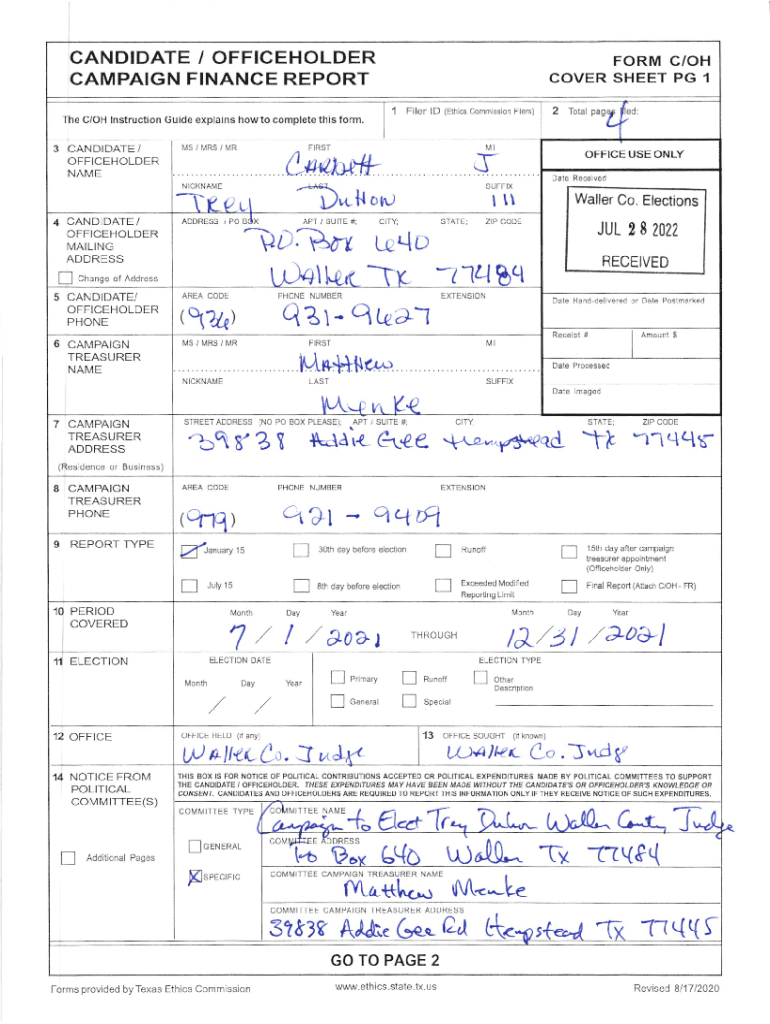 CANDIDATE / OFFICEHOLDER
CAMPAIGN FINANCE REPORT
FORM C/OH
COVER SHEET PG 1
The C/OH Instruction Guide explains how to complete this form.
1 Filer ID (Ethics Commission Filers)
2 Total pages filed:
4
3 CANDIDATE / OFFICEHOLDER NAME
MS / MRS / MR FIRST MI
Carbett J
NICKNAME LAST SUFFIX
Trey Duhon III
OFFICE USE ONLY
Date Received
Waller Co. Elections
JUL 28 2022
RECEIVED
4 CANDIDATE / OFFICEHOLDER MAILING ADDRESS
Change of Address
ADDRESS / PO BOX APT / SUITE #; CITY; STATE; ZIP CODE
P.O. Box 640
Waller TX 77484
5 CANDIDATE/ OFFICEHOLDER PHONE
AREA CODE PHONE NUMBER EXTENSION
(936) 931-9627
Date Hand-delivered or Date Postmarked
Receipt # Amount $
Date Processed
Date Imaged
6 CAMPAIGN TREASURER NAME
MS / MRS / MR FIRST MI
Matthew
NICKNAME LAST SUFFIX
Menke
7 CAMPAIGN TREASURER ADDRESS
(Residence or Business)
STREET ADDRESS (NO PO BOX PLEASE); APT / SUITE #; CITY STATE; ZIP CODE
39838 Addie Gee Hempstead TX 77445
8 CAMPAIGN TREASURER PHONE
AREA CODE PHONE NUMBER EXTENSION
(979) 921-9409
9 REPORT TYPE
January 15 30th day before election Runoff 15th day after campaign treasurer appointment (Officeholder Only)
July 15 8th day before election Exceeded Modified Reporting Limit Final Report (Attach C/OH - FR)
10 PERIOD COVERED
Month Day Year Month Day Year
7 / 1 / 2021 THROUGH 12/31/2021
11 ELECTION
ELECTION DATE ELECTION TYPE
Month Day Year Primary Runoff Other Description
/ / General Special
12 OFFICE
OFFICE HELD (if any) 13 OFFICE SOUGHT (if known)
Waller Co. Judge Waller Co. Judge
14 NOTICE FROM POLITICAL COMMITTEE(S)
Additional Pages
THIS BOX IS FOR NOTICE OF POLITICAL CONTRIBUTIONS ACCEPTED OR POLITICAL EXPENDITURES MADE BY POLITICAL COMMITTEES TO SUPPORT
THE CANDIDATE / OFFICEHOLDER. THESE EXPENDITURES MAY HAVE BEEN MADE WITHOUT THE CANDIDATE'S OR OFFICEHOLDER'S KNOWLEDGE OR
CONSENT. CANDIDATES AND OFFICEHOLDERS ARE REQUIRED TO REPORT THIS INFORMATION ONLY IF THEY RECEIVE NOTICE OF SUCH EXPENDITURES.
COMMITTEE TYPE
GENERAL
SPECIFIC
COMMITTEE NAME
Campaign to Elect Trey Duhon Waller County Judge
COMMITTEE ADDRESS
PO Box 640 Waller TX 77484
COMMITTEE CAMPAIGN TREASURER NAME
Matthew Menke
COMMITTEE CAMPAIGN TREASURER ADDRESS
39838 Addie Gee Rd Hempstead TX 77445
GO TO PAGE 2
Forms provided by Texas Ethics Commission www.ethics.state.tx.us Revised 8/17/2020